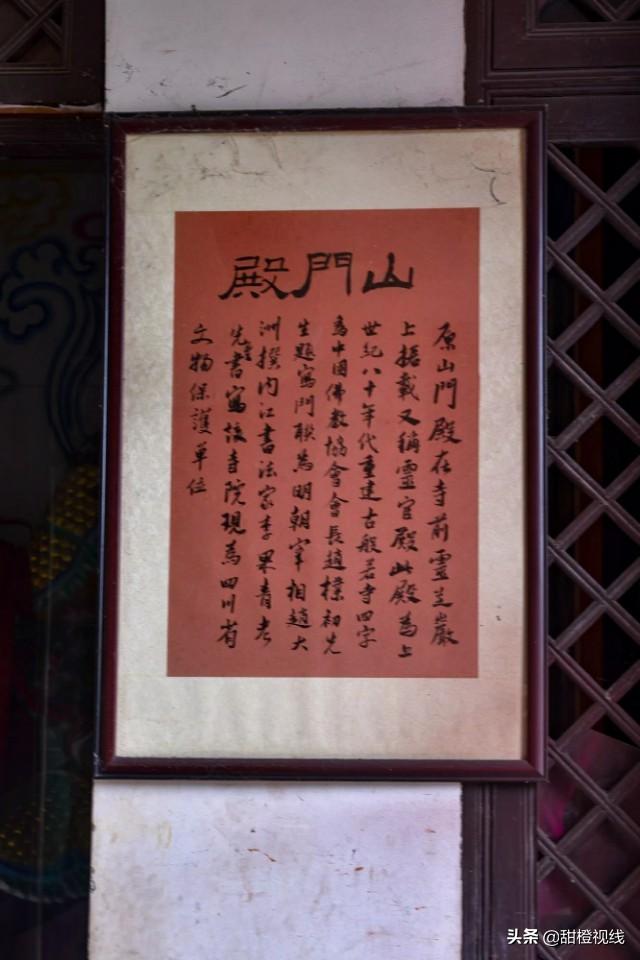 山門殿
原山門殿在寺前靈芝巖
上据載又稱靈官殿此殿為上
世紀八十年代重建古般若寺四字
為中國佛教協會會長趙樸初先
生題寫門聯為明朝宰相趙大
洲撰内江書法家李果青老
先生書寫該寺院現為四川省
文物保護單位
头条 @甜橙视线